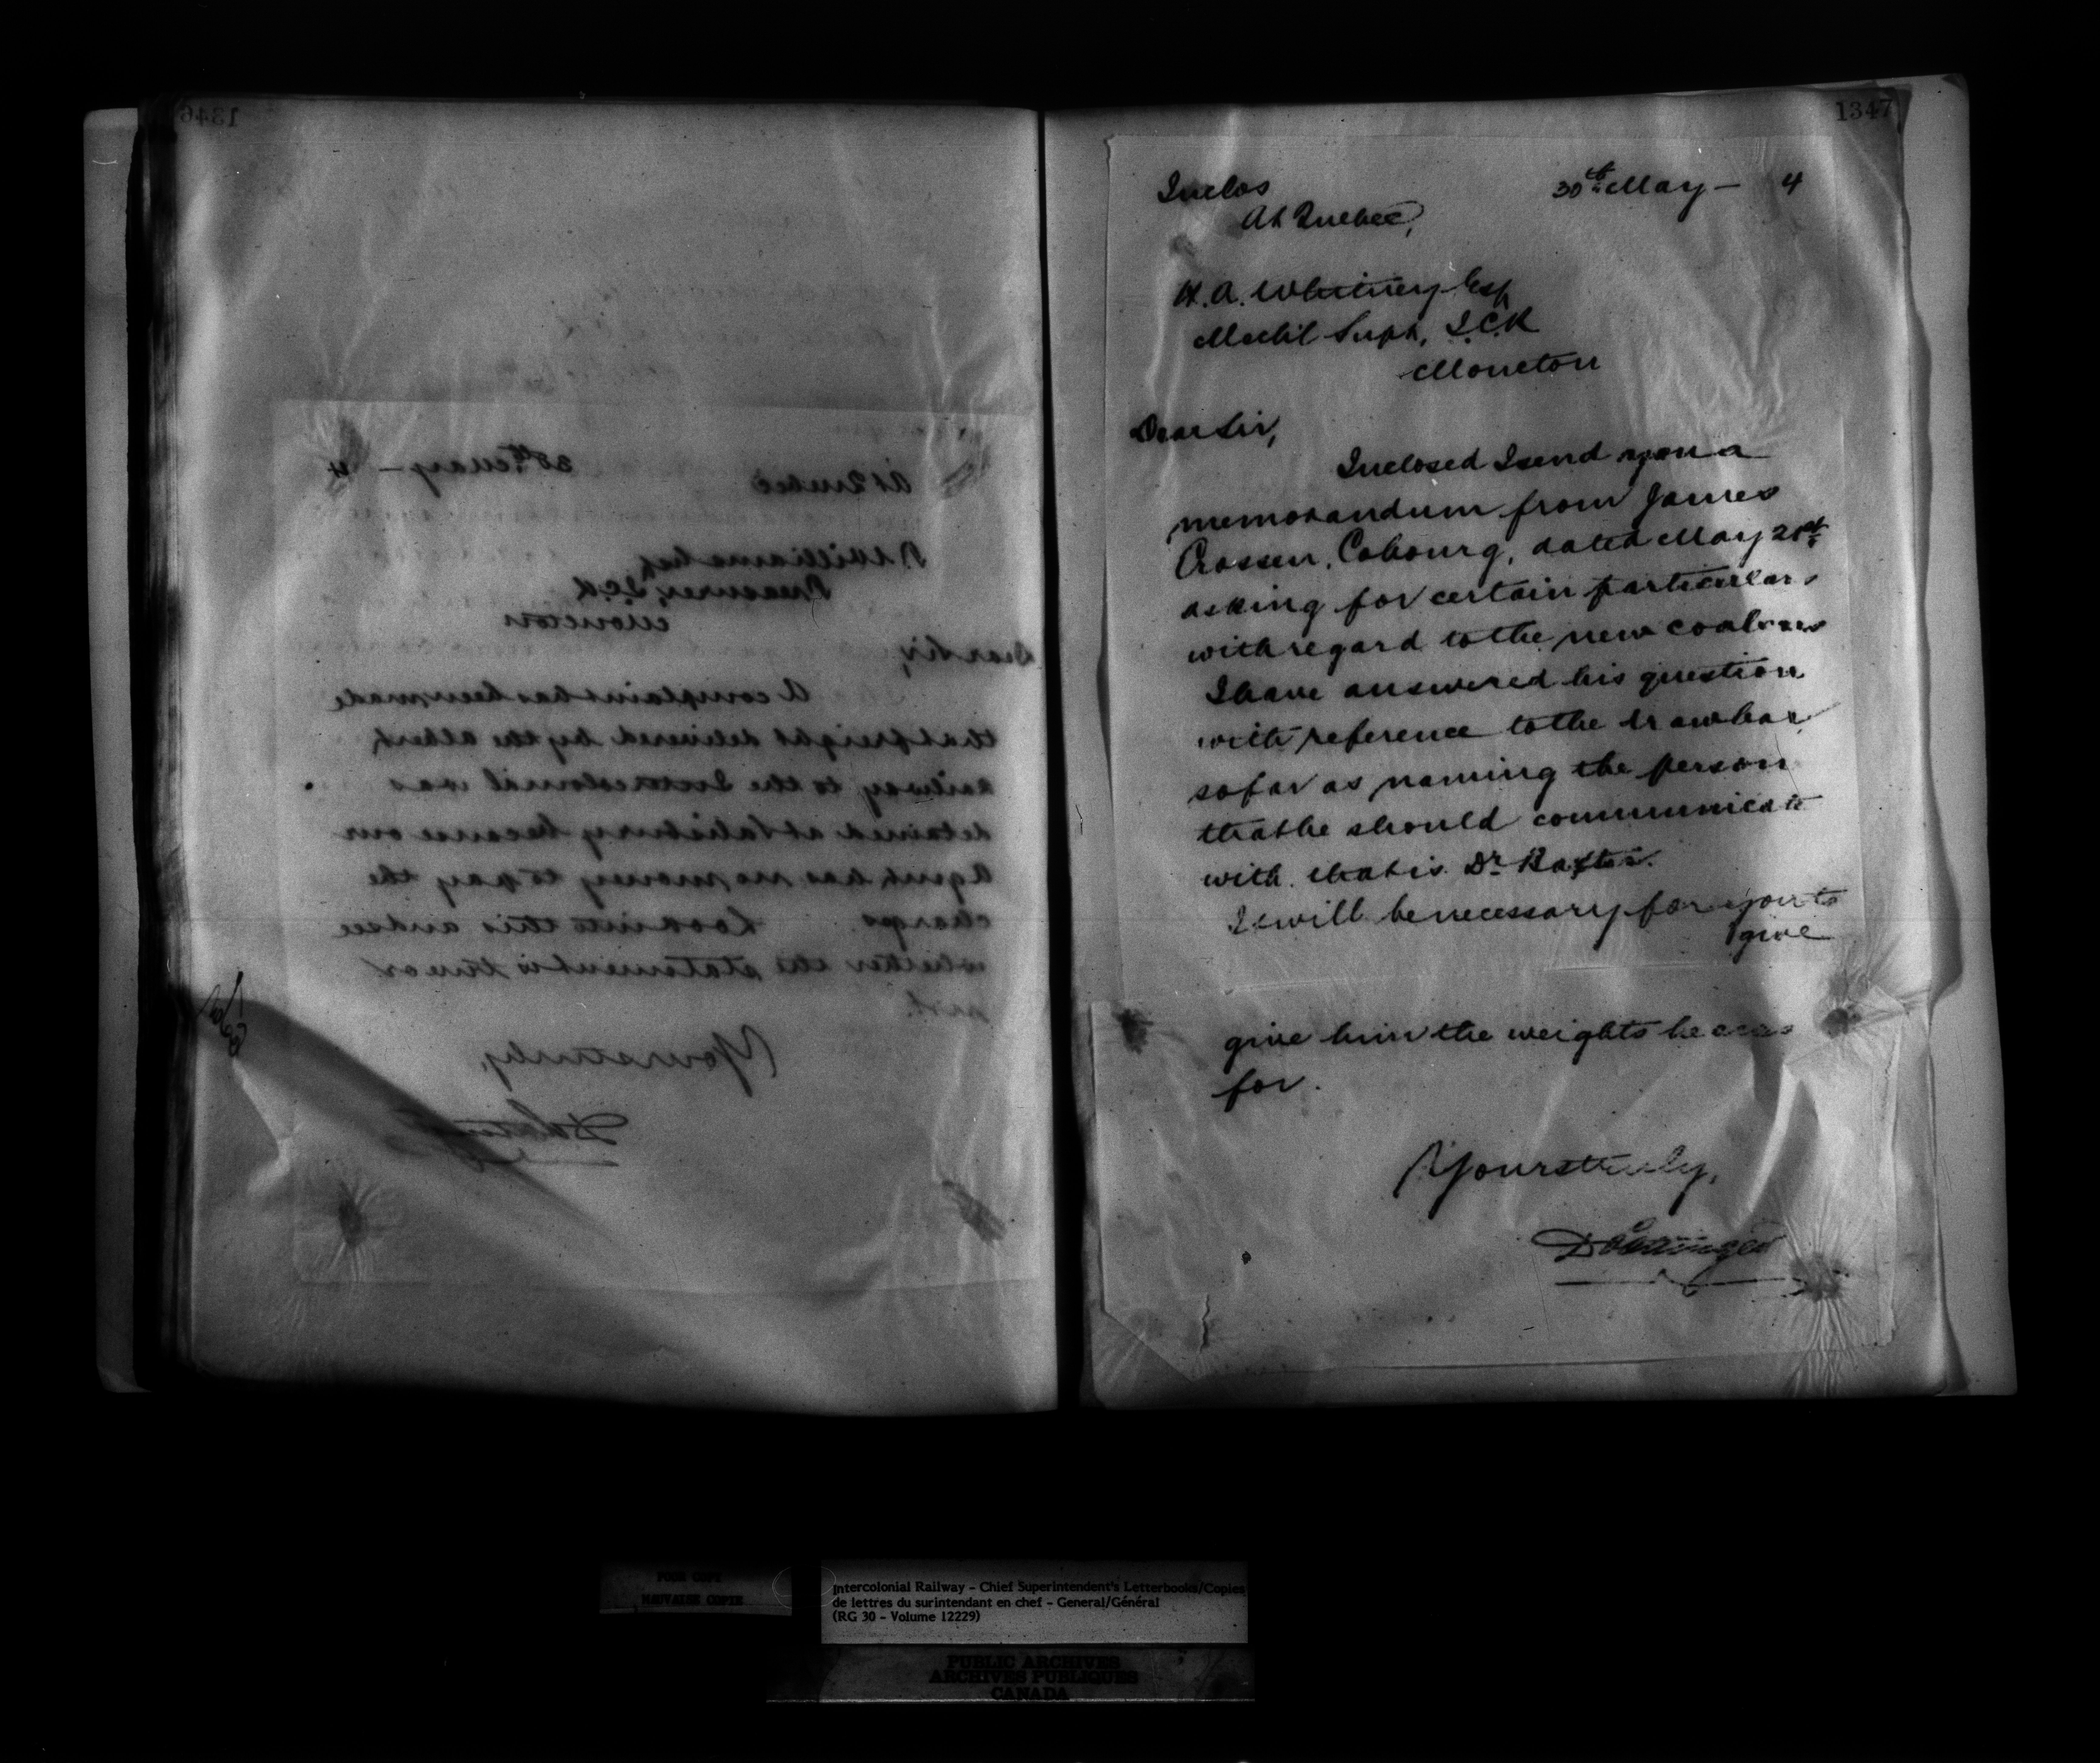 1346
At Quebec 30th May - 4
Williams Esq
Treasurer, I.C.R
Moncton
Dear Sir,
A complaint has been made
that freight delivered by the Albert
Railway to the Intercolonial was
detained at Salisbury because our
Agent has no money to pay the
charges. Look into this and see
whether the statement is true or
not.
Yours truly,
1347
Inclos 30th May - 4
At Quebec,
H. A. Whitney Esq
Mechl Supt, I.C.R
Moncton
Dear Sir,
Inclosed I send you a
memorandum from James
Crossen, Cobourg, dated May 21st
asking for certain particulars
with regard to the new coal cars
I have answered his question
with reference to the drawbar,
so far as naming the person
that he should communicate
with. that is Dr Baxter.
It will be necessary for you to
give
give him the weights he asks
for.
Yours truly,
D Pottinger
POOR COPY
MAUVAISE COPIE
Intercolonial Railway - Chief Superintendent's Letterbooks/Copies
de lettres du surintendant en chef - General/Général
(RG 30 - Volume 12229)
PUBLIC ARCHIVES
ARCHIVES PUBLIQUES
CANADA